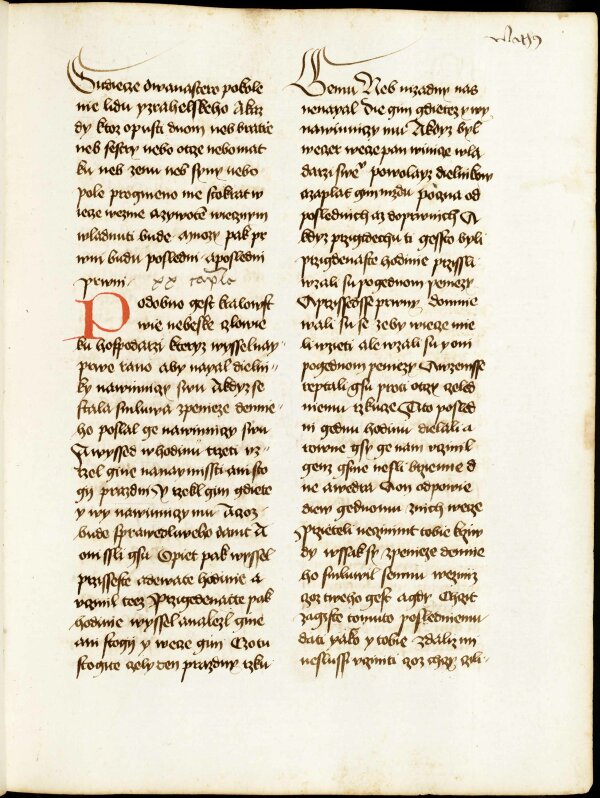 Sudiecze dwanastero pokole
nie lidu yzrahelskeho A kaz
dy ktoz opusti duom neb bratie
neb sestry nebo otcze nebo mat
ku neb zenu neb syny nebo
pole pro gmeno me stokrat w
iecze wezme a zywoten wiecznym
wladnuti bude a mnozy pak pr
wni budu posledni a posledni
prwni xx capla
Podobno gest kralowst
wie nebeske czlowie
ku hospodarzi kteryz wyssel nay
prwe rano aby nayal dielni
ky na winniczy swu A kdyz se
stala smluwa z peneze dennie
ho poslal ge na winniczy swu
A wyssed w hodinu trzeti vz
rzel gine na namiessti ani sto
gij prazdni y rzekl gim gdiete
y wy na winniczy mu A czoz
bude sprawedliweho dam A
oni ssli gsu Opiet pak wyssel
przi sseste a dewate hodinie a
vczinil teez Przi gedenatte pak
hodinie wyssel a nalezl gine
ani stogij y wece gim Czo tu
stogite czely den prazdny rzku
Gemu Neb nizadny nas
nenayal Die gim gdietez y wy
na winniczy mu A kdyz byl
weczer wece pan winicze wla
darzi swe powolayz dielnikow
czaplat gim mzdu poczna od
poslednich az do prwnich A
kdyz przigidechu ti gessto byli
przi gedenaste hodinie przissli
wzali su po gednom penezy
A przissedsse prwny domnie
wali su se zeby wiecze mie
li wzieti ale wzali su y oni
po gednom penezy A wzemsse
reptali gsu proti otczy czeled
niemu rzkucze Tito posled
ni gednu hodinu dielali a
rowne gsy ge nam vczinil
genz gsme nesli brzemie d
ne a wedra A on odpowie
diew gednomu z nich wece
Przieteli neczinimt tobie krziw
dy wssak sy z peneze dennie
ho smluwil se mnu wezmiz
czoz tweho gest a gdy Chczit
zagiste tomuto posledniemu
dati yako y tobie zdaliz mi
neslussi vcziniti czoz chczy czili